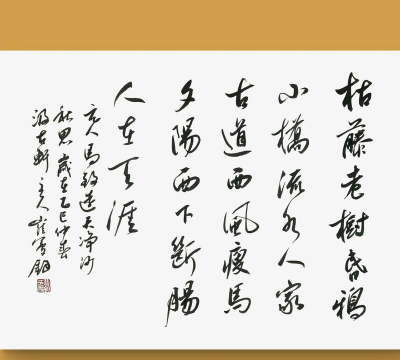 枯藤老樹昏鴉
小橋流水人家
古道西風瘦馬
夕陽西下斷腸
人在天涯
元人馬致遠天净沙
秋思歲在乙巳仲春
古軒主人